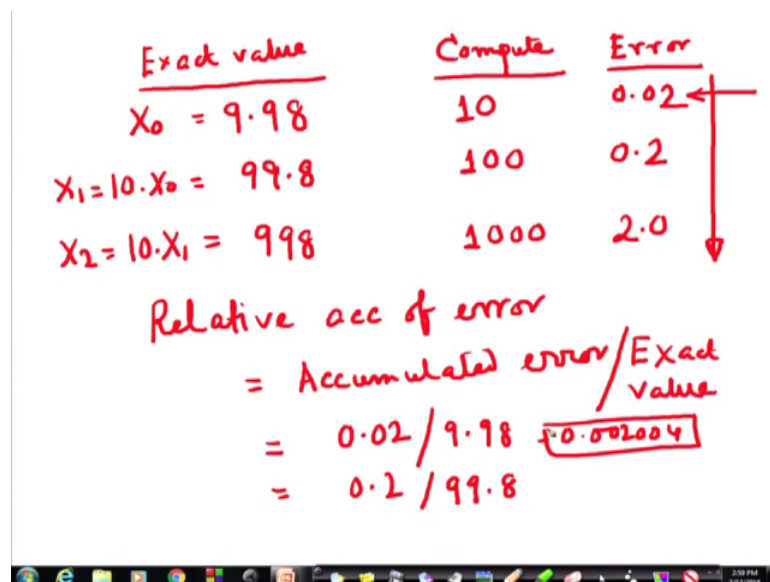 Exact value Compute Error
X₀ = 9.98 10 0.02
X₁ = 10.X₀ = 99.8 100 0.2
X₂ = 10.X₁ = 998 1000 2.0
Relative acc of error
= Accumulated error / Exact value
= 0.02 / 9.98 = 0.002004
= 0.2 / 99.8
2:59 PM